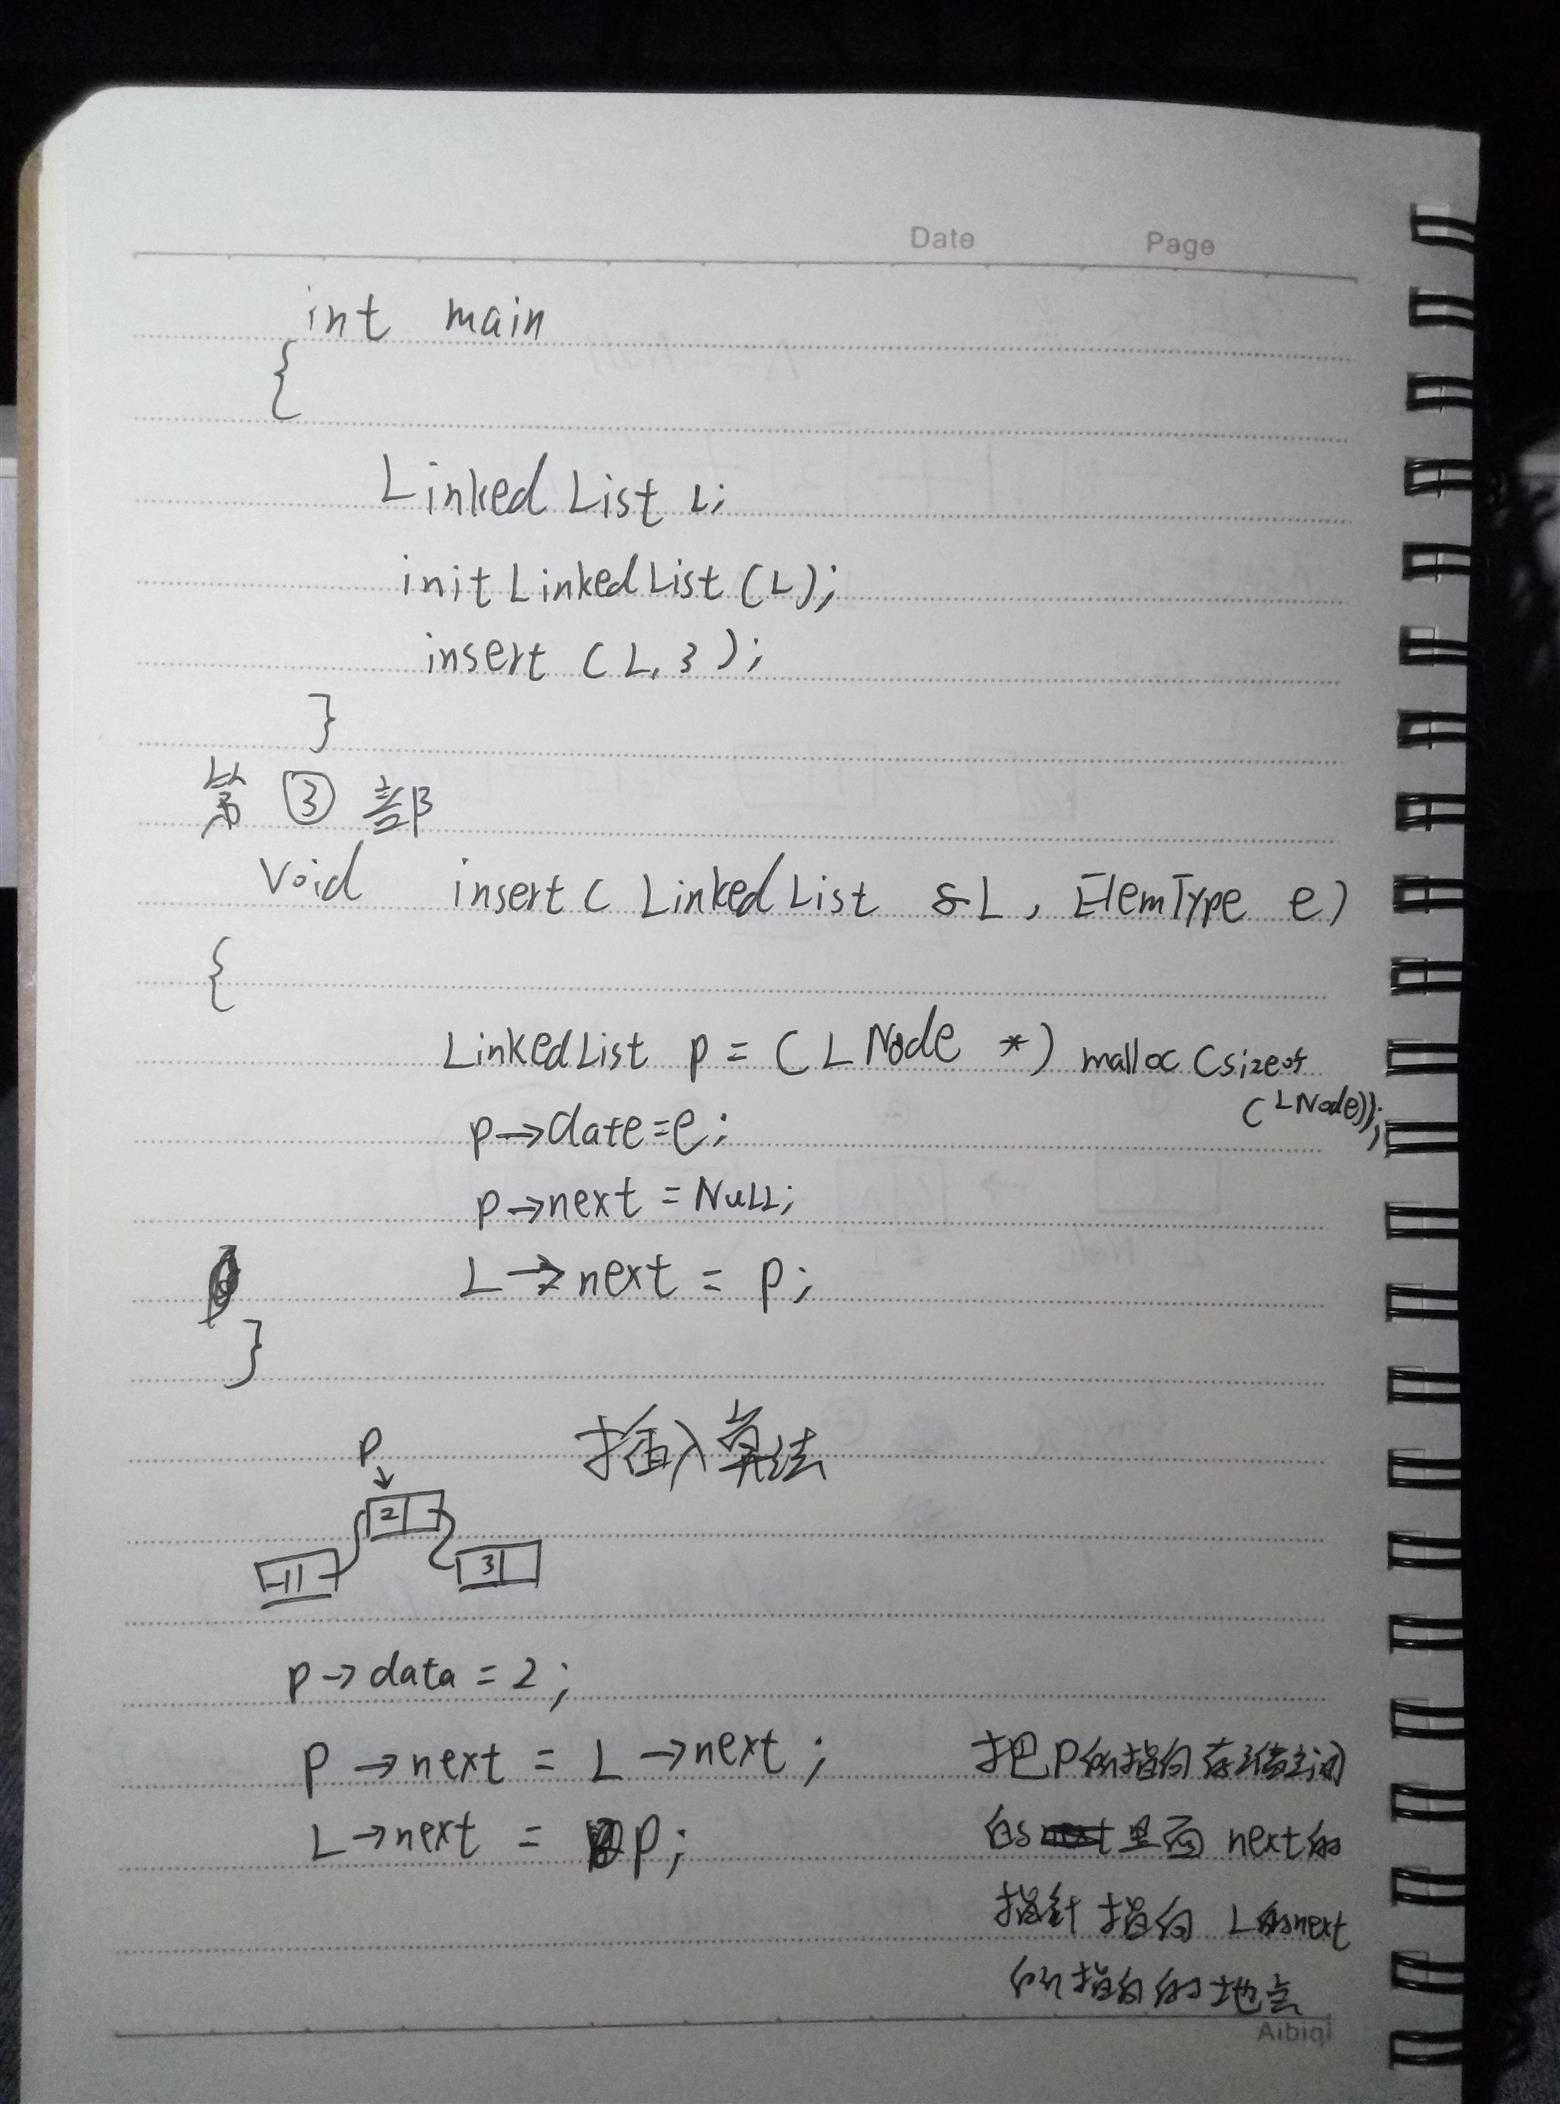 Date Page
int main
{
Linked List L;
init Linked List (L);
insert (L, 3);
}
第 ③ 部
Void insert ( Linked List &L, ElemType e)
{
Linked List p = (LNode *) malloc (sizeof
(LNode));
p→date=e;
p→next = NULL;
L→next = p;
}
p
插入算法
2
-1
3
p→data = 2;
p→next = L→next;
把p所指向存储空间
L→next = p;
的里面 next的
指针指向 L的next
所指向的地点
Aibiqi